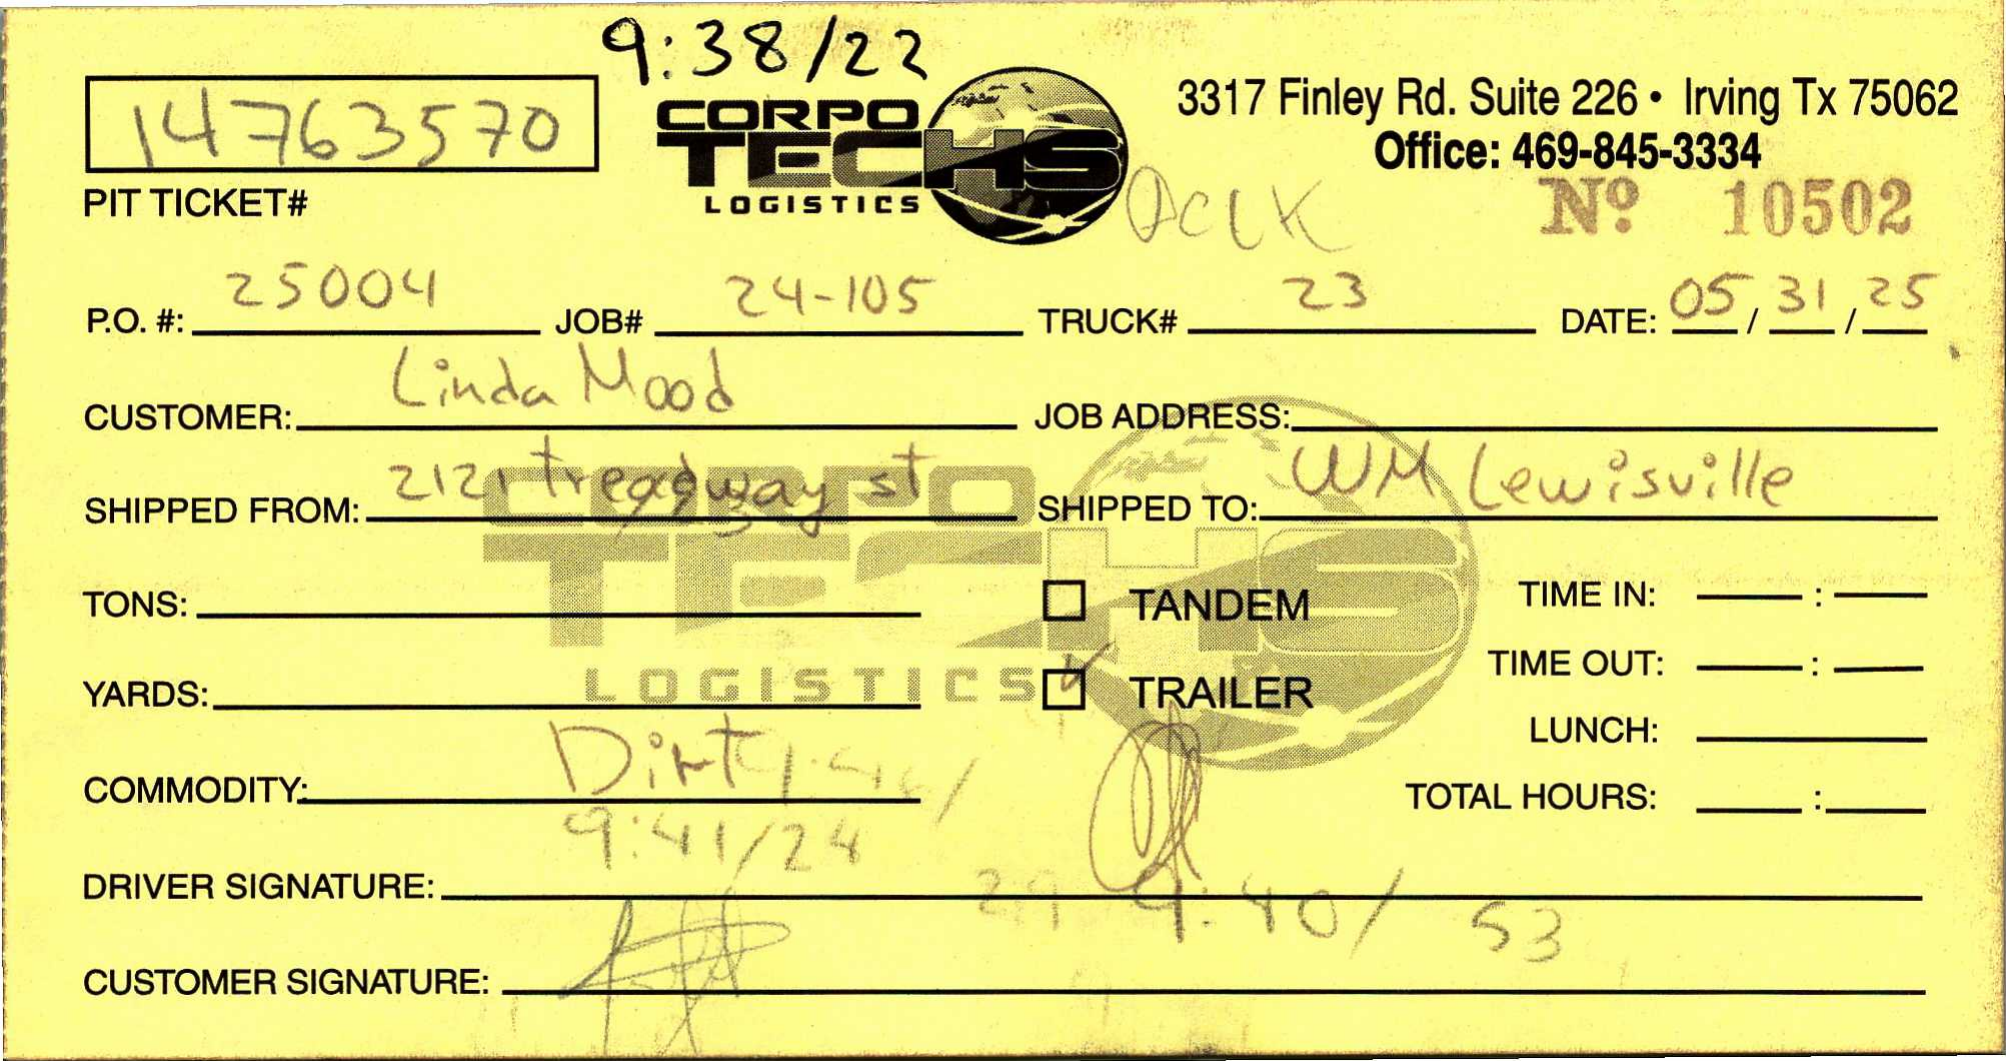 9:38/22
14763570
PIT TICKET#
CORPO
TECHS
LOGISTICS
3317 Finley Rd. Suite 226 • Irving Tx 75062
Office: 469-845-3334
Nº 10502
P.O. #: 25004 JOB# 24-105 TRUCK# 23 DATE: 05/31/25
CUSTOMER: Linda Mood JOB ADDRESS:
SHIPPED FROM: 2121 treadway st SHIPPED TO: WM Lewisville
CORPO
TECHS
LOGISTICS
TONS: TANDEM TIME IN: :
TIME OUT: :
YARDS: TRAILER
LUNCH:
COMMODITY: Dirt TOTAL HOURS: :
9:41/24
DRIVER SIGNATURE:
29 9:40/53
CUSTOMER SIGNATURE: